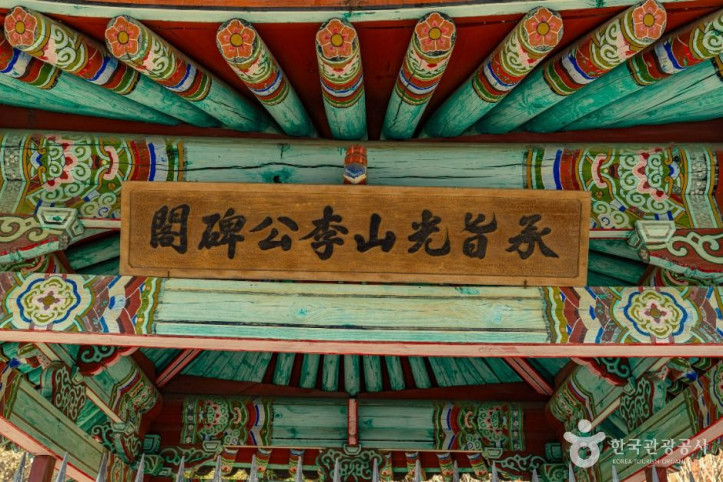 承旨光山李公碑閣
한국관광공사
KOREA TOURISM ORGANIZATION